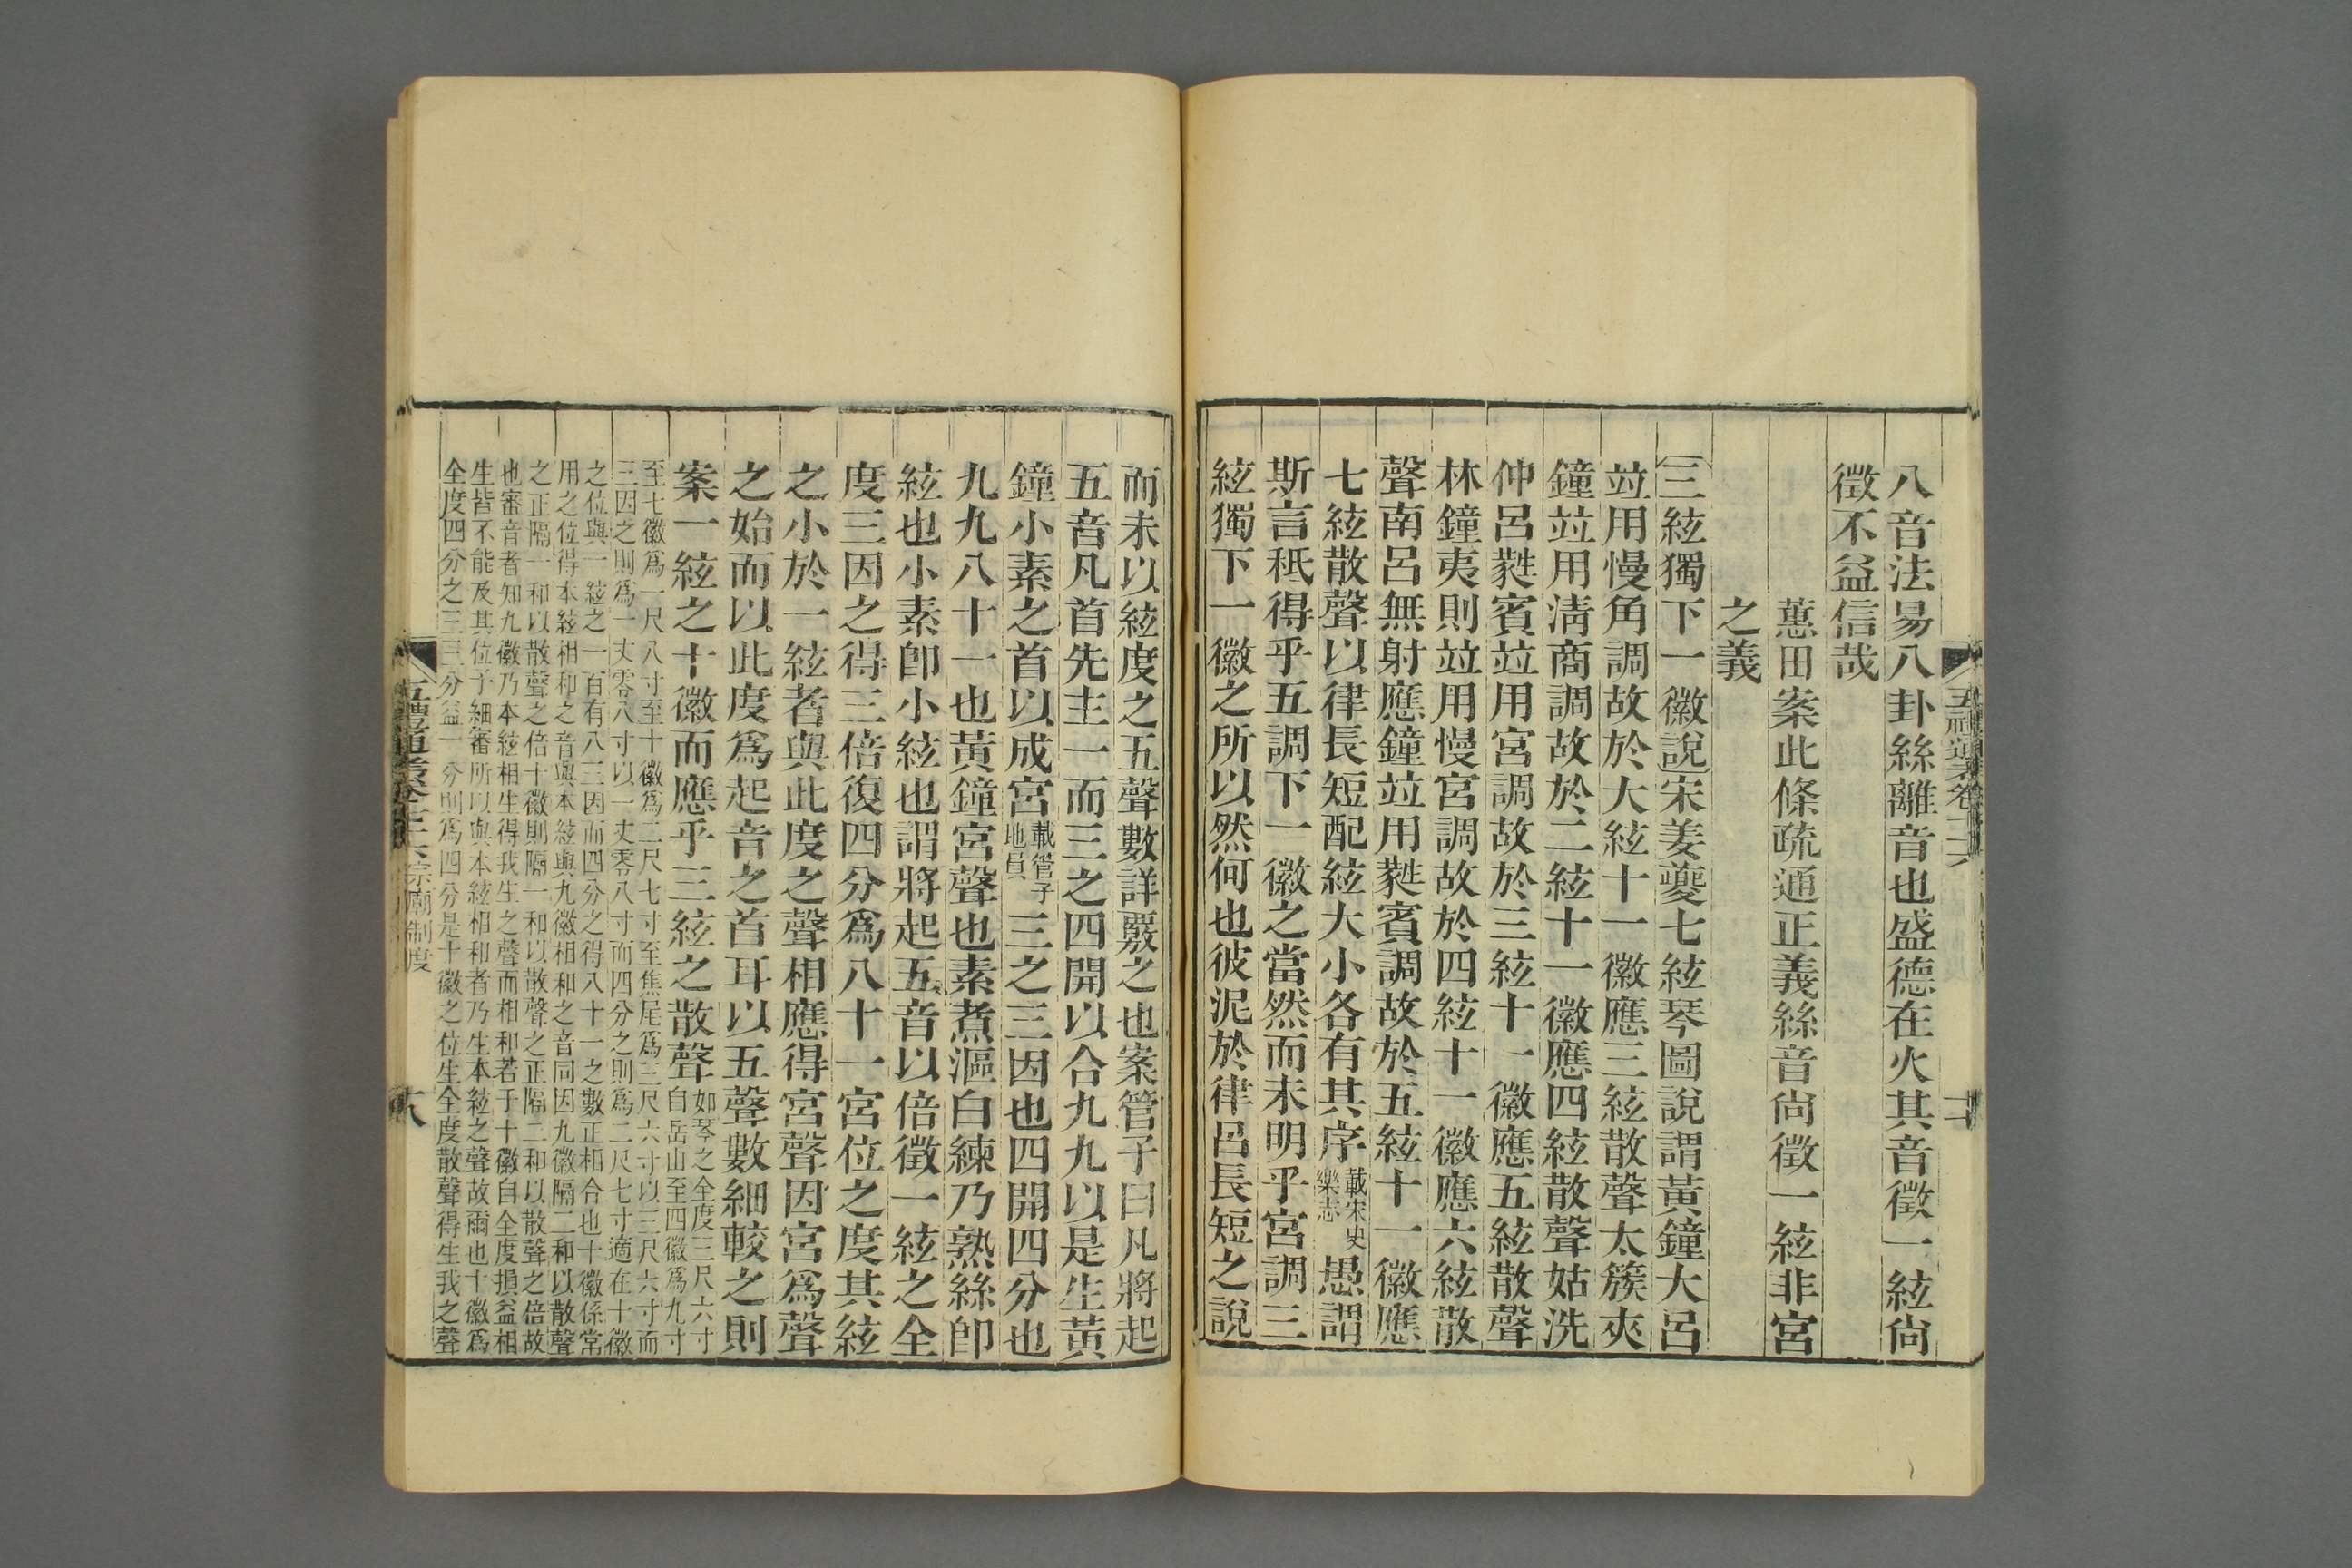 八音法易八卦絲離音也盛德在火其音徵一絃尙
徵不益信哉
蕙田案此條疏通正義絲音尙徵一絃非宮
之義
三絃獨下一徽說宋姜夔七絃琴圖說謂黃鐘大呂
竝用慢角調故於大絃十一徽應三絃散聲太簇夾
鐘竝用淸商調故於二絃十一徽應四絃散聲姑洗
仲呂蕤賓竝用宮調故於三絃十一徽應五絃散聲
林鐘夷則竝用慢宮調故於四絃十一徽應六絃散
聲南呂無射應鐘竝用蕤賓調故於五絃十一徽應
七絃散聲以律長短配絃大小各有其序載宋史樂志愚謂
斯言秖得乎五調下一徽之當然而未明乎宮調三
絃獨下一徽之所以然何也彼泥於律呂長短之說
而未以絃度之五聲數詳覈之也案管子曰凡將起
五音凡首先主一而三之四開以合九九以是生黃
鐘小素之首以成宮載管子地員三之三因也四開四分也
九九八十一也黃鐘宮聲也素煮漚白練乃熟絲卽
絃也小素卽小絃也謂將起五音以倍徵一絃之全
度三因之得三倍復四分爲八十一宮位之度其絃
之小於一絃者與此度之聲相應得宮聲因宮爲聲
之始而以此度爲起音之首耳以五聲數細較之則
案一絃之十徽而應乎三絃之散聲如琴之全度三尺六寸自岳山至四徽爲九寸
至七徽爲一尺八寸至十徽爲二尺七寸至焦尾爲三尺六寸以三尺六寸而
三因之則爲一丈零八寸以一丈零八寸而四分之則爲二尺七寸適在十徽
之位與一絃之一百有八三因而四分之得八十一之數正相合也十徽係常
用之位得本絃相和之音與本絃與九徽相和之音同因九徽隔二和以散聲
之正隔一和以散聲之倍十徽則隔一和以散聲之正隔二和以散聲之倍故
也審音者知九徽乃本絃相生得我生之聲而相和若于十徽自全度損益相
生皆不能及其位予細審所以與本絃相和者乃生本絃之聲故爾也十徽爲
全度四分之三三分益一分則爲四分是十徽之位生全度散聲得生我之聲
五禮通考卷七十六宗廟制度
十八